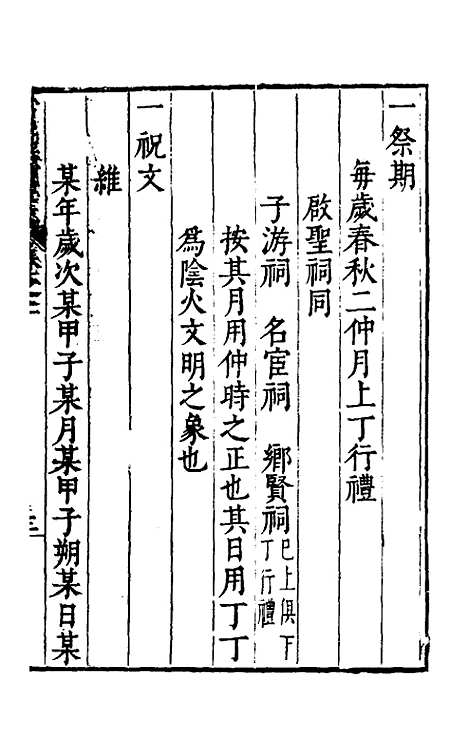 一祭期
每歲春秋二仲月上丁行禮
啟聖祠同
子游祠　名宦祠　鄉賢祠巳上俱下丁行禮
按其月用仲時之正也其日用丁丁
爲陰火文明之象也
一祝文
維
某年歲次某甲子某月某甲子朔某日某